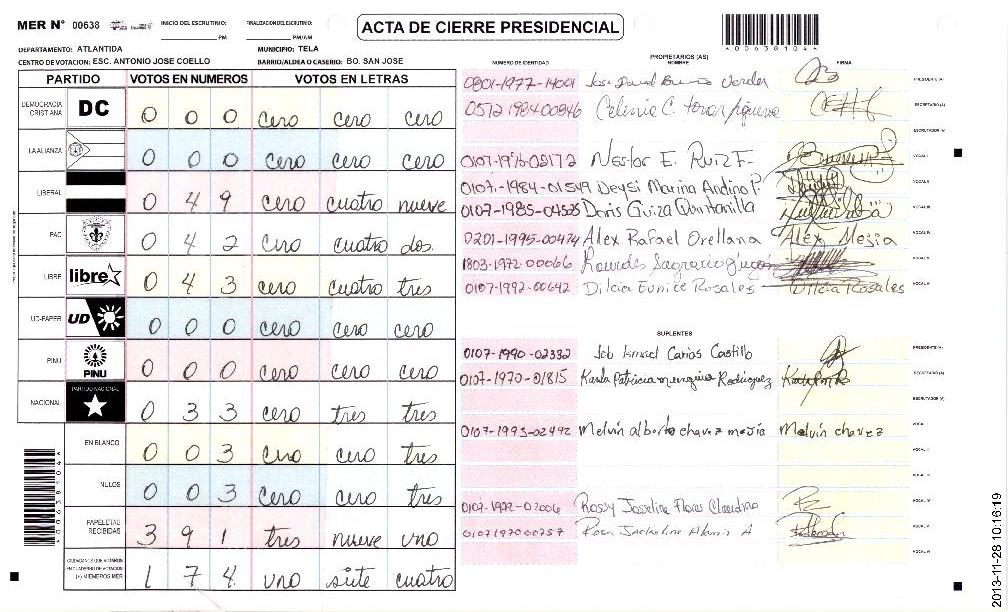 MER N° 00638
INICIO DEL ESCRUTINIO: PM
FINALIZACION DEL ESCRUTINIO: PM/AM
ACTA DE CIERRE PRESIDENCIAL
A00638104A
DEPARTAMENTO: ATLANTIDA
MUNICIPIO: TELA
CENTRO DE VOTACION: ESC. ANTONIO JOSE COELLO
BARRIO/ALDEA O CASERIO: BO. SAN JOSE
PARTIDO VOTOS EN NUMEROS VOTOS EN LETRAS
DEMOCRACIA CRISTIANA DC 0 0 0 cero cero cero
LA ALIANZA 0 0 0 cero cero cero
LIBERAL 0 4 9 cero cuatro nueve
PAC 0 4 2 cero cuatro dos
LIBRE libre 0 4 3 cero cuatro tres
UD-FAPER UD 0 0 0 cero cero cero
PINU PINU 0 0 0 cero cero cero
NACIONAL PARTIDO NACIONAL 0 3 3 cero tres tres
EN BLANCO 0 0 3 cero cero tres
NULOS 0 0 3 cero cero tres
PAPELETAS RECIBIDAS 3 9 1 tres nueve uno
CIUDADANOS QUE VOTARON EN CUADERNO DE VOTACION (+) MIEMBROS MER 1 7 4 uno siete cuatro
A00638104A
PROPIETARIOS (AS)
NUMERO DE IDENTIDAD NOMBRE FIRMA
0801-1977-14001 PRESIDENTE (A)
0512 1984 00846 Celenia C. Tovar Figueroa SECRETARIO (A)
ESCRUTADOR (A)
0107-1976-02172 Nestor E. Ruiz F. VOCAL I
0107-1984-01549 Deysi Marina Andino P. VOCAL II
0107-1985-04525 Doris Guiza Quintanilla VOCAL III
0201-1995-00474 Alex Rafael Orellana Alex Mejia VOCAL IV
1803-1972-00066 Lourdes Sagrario VOCAL V
0107-1992-00642 Dilcia Eunice Rosales Dilcia Rosales VOCAL VI
SUPLENTES
0107-1990-02332 Job Ismael Carias Castillo PRESIDENTE (A)
0107-1970-01815 Karla Patricia Rodriguez SECRETARIO (A)
ESCRUTADOR (A)
0107-1993-02492 Melvin alberto chavez mejía Melvin chavez VOCAL I
VOCAL II
VOCAL III
0107-1992-02006 Rossy Josseline Flores Claudino VOCAL IV
0107197000757 Rosa VOCAL V
VOCAL VI
2013-11-28 10:16:19